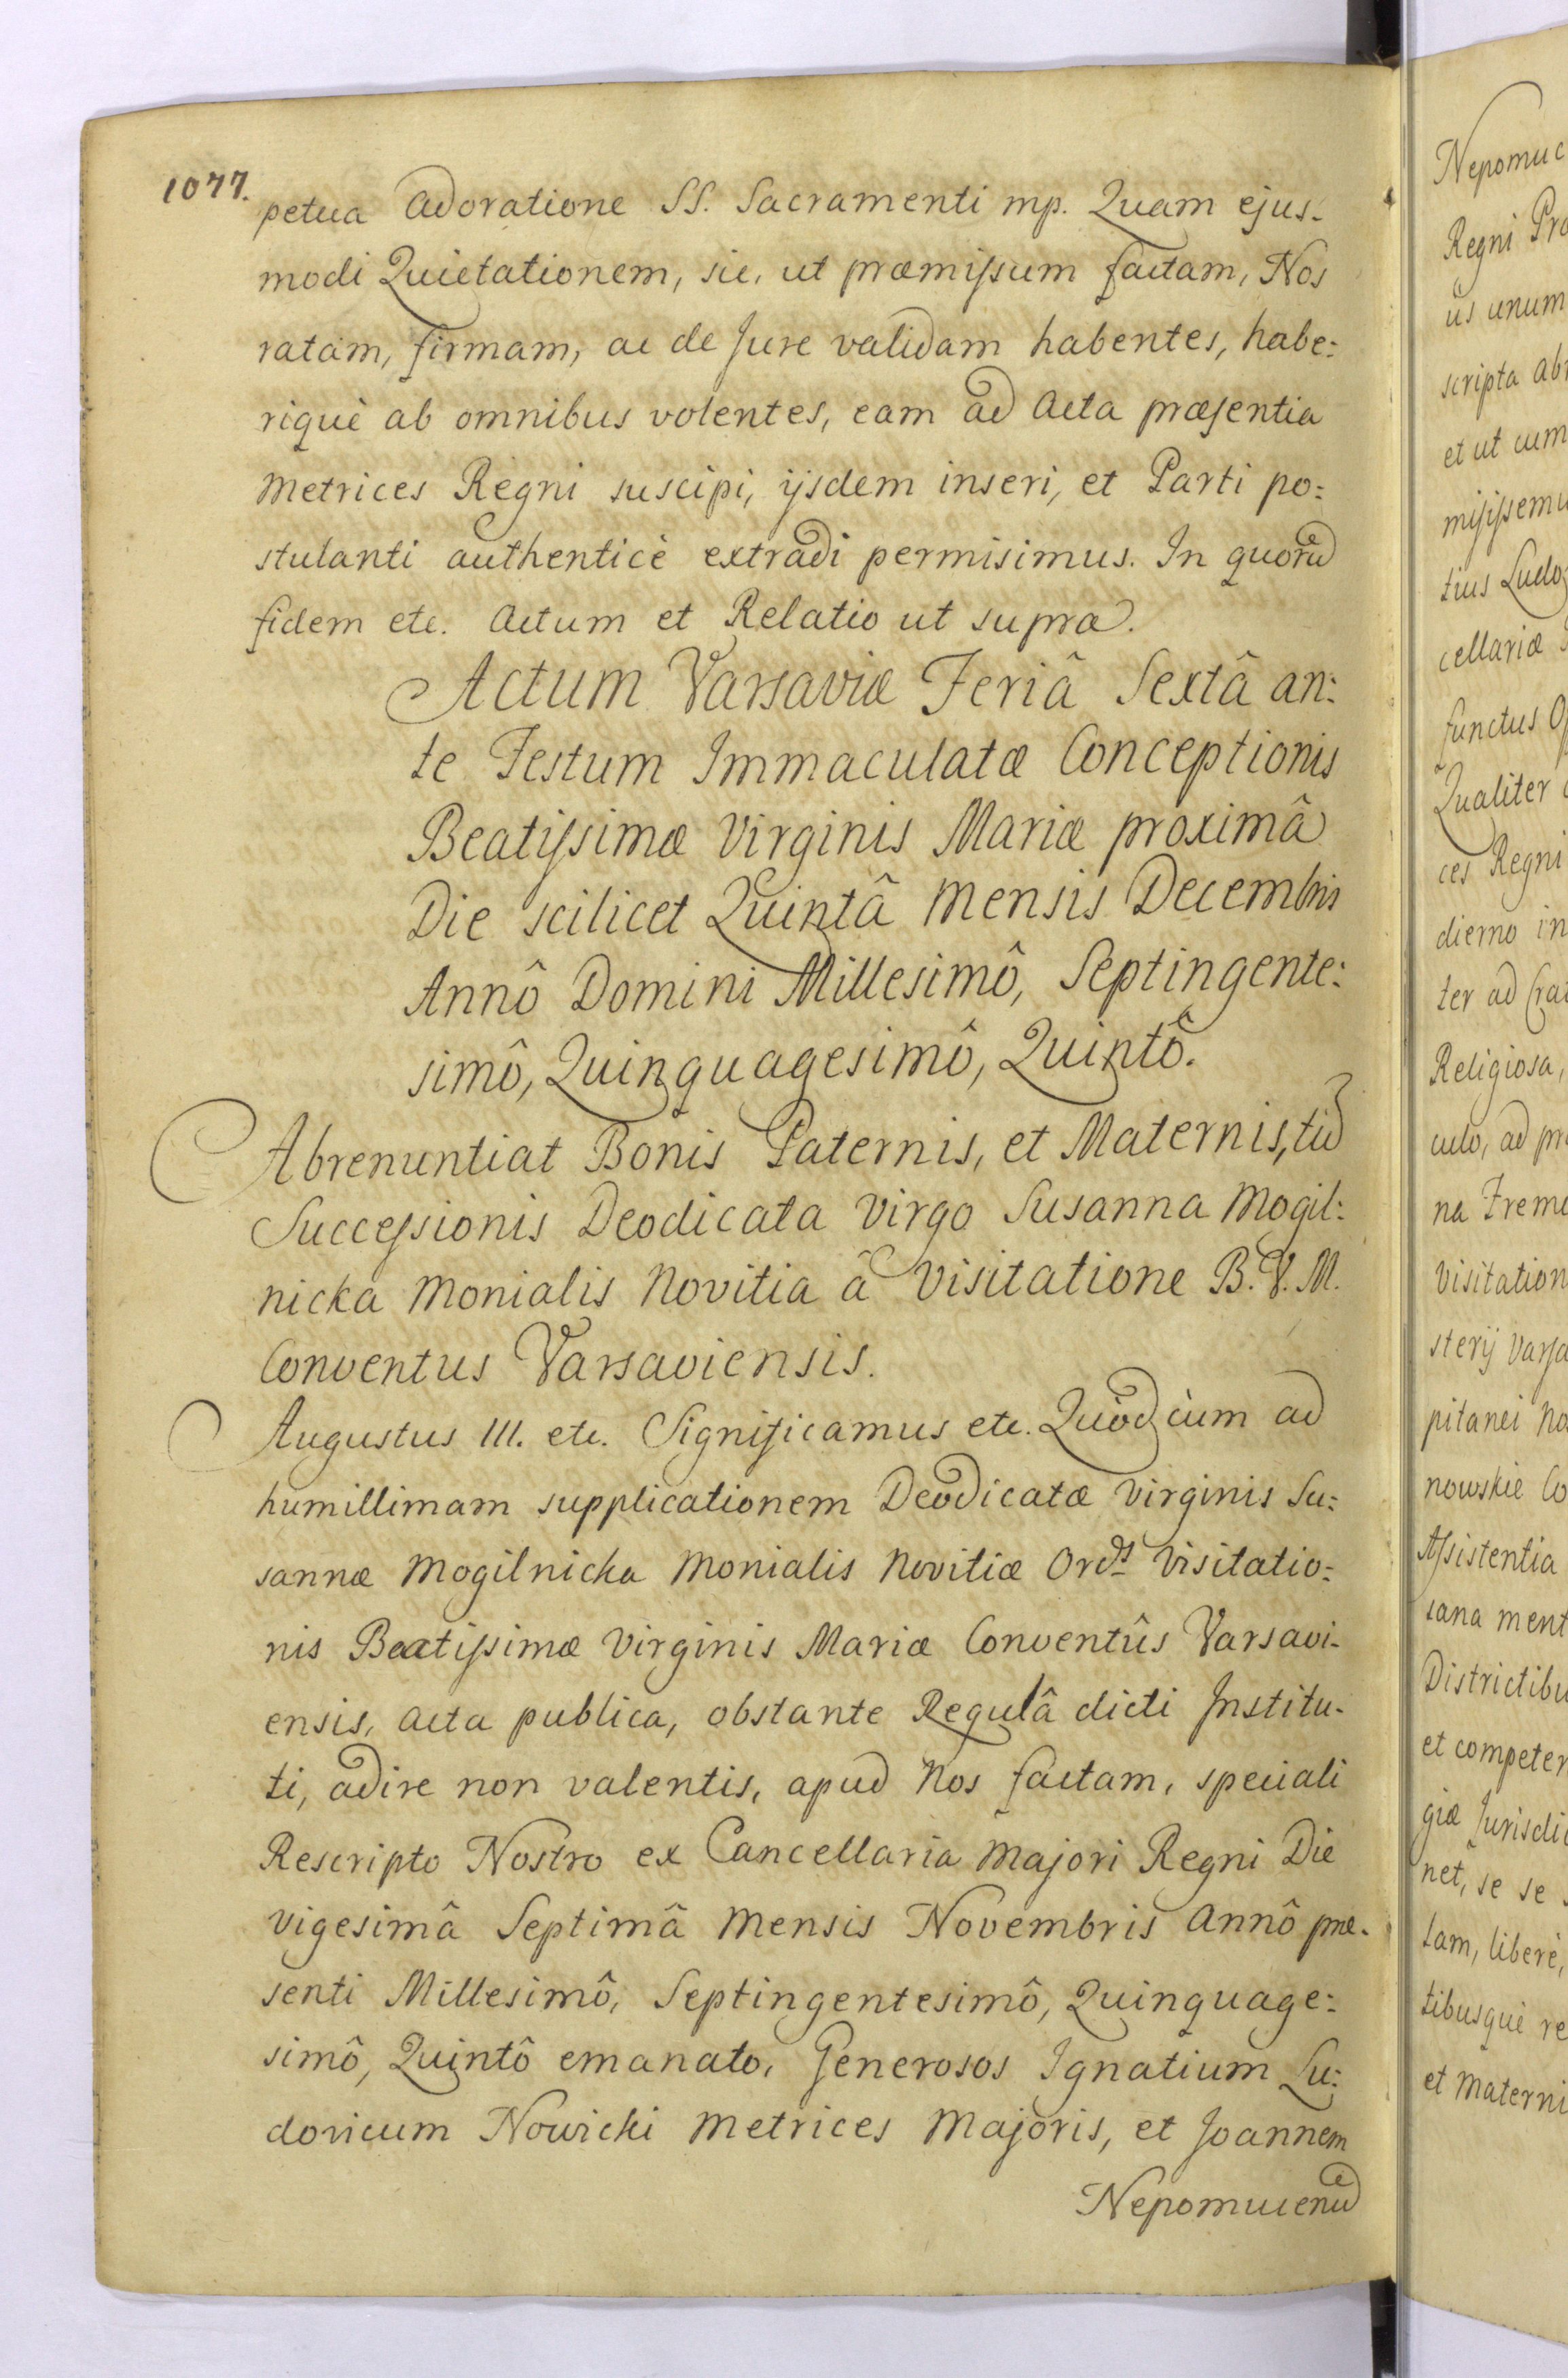 1077.
petua Adoratione SS. Sacramenti mp. Quam ejus-
modi Quietationem, sic, ut præmissum factam, Nos
ratam, firmam, ac de Jure validam habentes, habe:
riquè ab omnibus volentes, eam ad Acta præsentia
Metrices Regni suscipi, ijsdem inseri, et Parti po:
stulanti authenticè extradi permisimus. In quorũ
fidem etc. Actum et Relatio ut supra.
Actum Varsaviæ Feriâ Sextâ an:
te Festum Immaculatæ Conceptionis
Beatissimæ Virginis Mariæ proximâ
Die scilicet Quintâ Mensis Decembris
Annô Domini Millesimô, Septingente:
simô, Quinquagesimô, Quintô.
Abrenuntiat Bonis Paternis, et Maternis, tũ
Successionis Deodicata Virgo Susanna Mogil:
nicka Monialis Novitia â Visitatione B. V. M.
Conventus Varsaviensis.
Augustus III. etc. Significamus etc. Quòd cùm ad
humillimam supplicationem Deodicatæ Virginis Su:
sannæ Mogilnicka Monialis Novitiæ Ord<sup>s</sup> Visitatio:
nis Beatissimæ Virginis Mariæ Conventûs Varsavi-
ensis, Acta publica, obstante Regulâ dicti Institu-
ti, adire non valentis, apud Nos factam, speciali
Rescripto Nostro ex Cancellaria Majori Regni Die
vigesimâ Septimâ Mensis Novembris Annô præ-
senti Millesimô, Septingentesimô, Quinquage:
simô, Quintô emanato, Generosos Ignatium Lu:
dovicum Nowicki Metrices Majoris, et Joannem
Nepomucenũ
Nepomuc
Regni Pro
ûs unum
scripta ab
et ut cum
misissemu
tius Ludo
cellariæ
functus O
Qualiter
ces Regni
dierno in
ter ad Cra
Religiosa,
culo, ad pr
na Freme
Visitation
sterij Varsa
pitanei No
nowskie Co
Assistentia
sana ment
Districtibu
et competer
giæ Jurisdi
net, se se
tam, liberè,
tibusquè re
et Materni